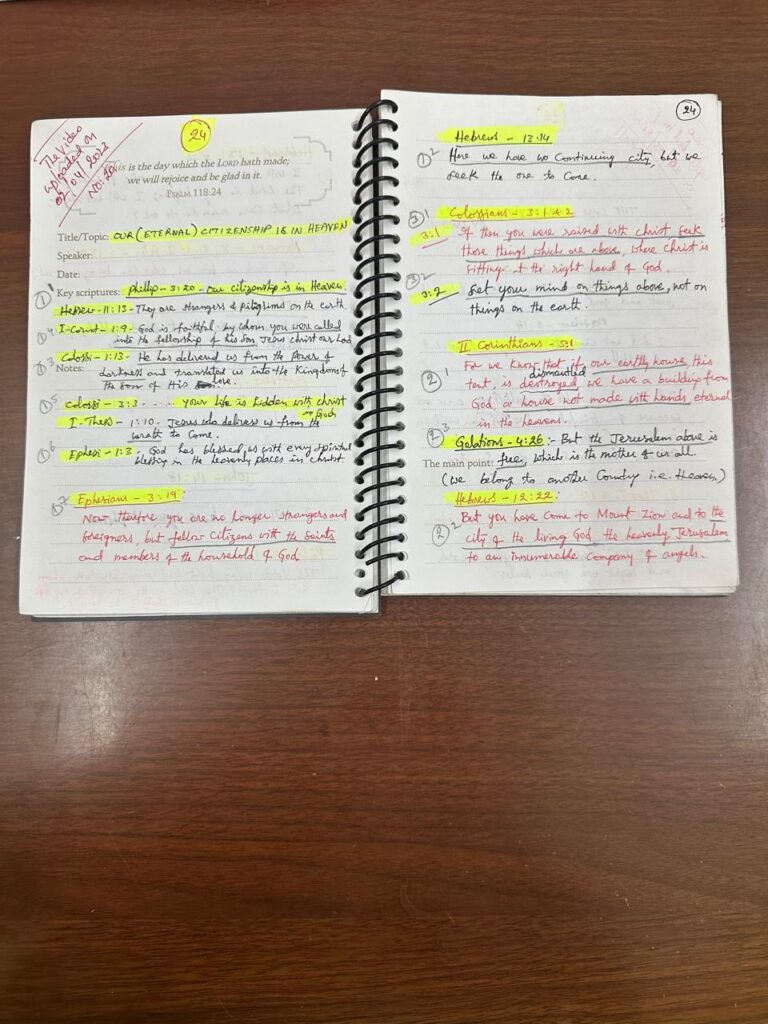 The Video
uploaded on
/04/2023
NO:
24
This is the day which the LORD hath made;
we will rejoice and be glad in it.
PSALM 118:24
Title/Topic: OUR (ETERNAL) CITIZENSHIP IS IN HEAVEN
Speaker:
Date:
① 1 Key scriptures: Phillip - 3:20 - Our citizenship is in Heaven.
Hebrew - 11:13 - They are strangers & piligrims on the earth.
① 4 I-Corint - 1:9 - God is faithful, by whom you were called
into the fellowship of his Son Jesus christ our Lord
① 3 Colossi - 1:13 - He has delivered us from the Power of
Notes: darkness and translated us into the Kingdom of
the Son of His love.
① 5 Colossi - 3:3 ... your life is hidden with christ
in God
I-Thess - 1:10 - Jesus who delivers us from the
wrath to Come.
① 6 Ephesi - 1:3 - God has blessed us with every spiritual
blessing in the heavenly places in christ
① 7 Ephesians - 3:19
Now therefore you are no longer strangers and
foreigners, but fellow Citizens with the Saints
and members of the household of God
24
Hebrews - 13:14
① 2 Here we have no Continuing city, but we
seek the one to Come.
③ 1 Colossians - 3:1 & 2
3:1 If then you were raised with christ seek
those things which are above, where Christ is
sitting at the right hand of God.
③ 2
3:2 Set your mind on things above, not on
things on the earth.
II Corinthians - 5:1
② 1 For we know that if our earthly house, this
dismantled
tent, is destroyed, we have a building from
God, a house not made with hands, eternal
in the heavens.
② 3 Galations - 4:26 :- But the Jerusalem above is
The main point: free, which is the mother of us all
(we belong to another Country i.e. Heaven)
Hebrews - 12:22:
② 2 But you have come to Mount Zion and to the
city of the living God, the heavenly Jerusalem
to an innumerable Company of angels.